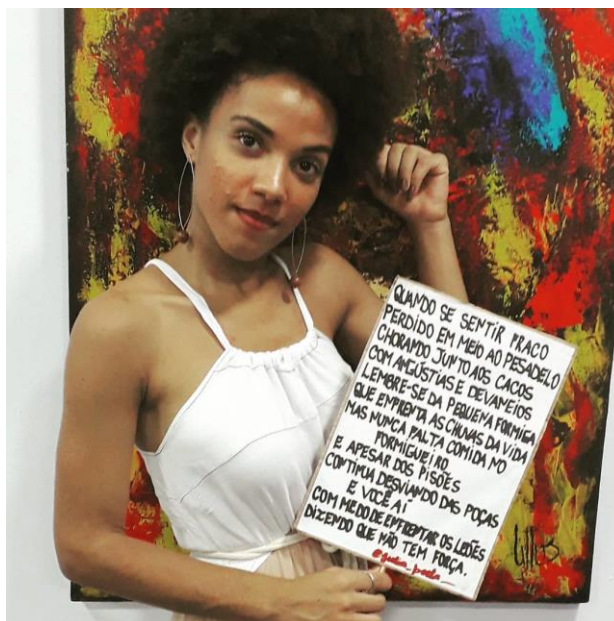 QUANDO SE SENTIR FRACO
PERDIDO EM MEIO AO PESADELO
CHORANDO JUNTO AOS CACOS
COM ANGÚSTIAS E DEVANEIOS
LEMBRE-SE DA PEQUENA FORMIGA
QUE ENFRENTA AS CHUVAS DA VIDA
MAS NUNCA FALTA COMIDA NO
FORMIGUEIRO.
E APESAR DOS PISÕES
CONTINUA DESVIANDO DAS POÇAS
E VOCÊ AÍ
COM MEDO DE ENFRENTAR OS LEÕES
DIZENDO QUE NÃO TEM FORÇA.